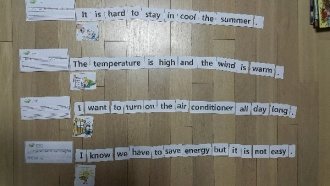 It is hard to stay in cool the summer.
The temperature is high and the wind is warm.
I want to turn on the air conditioner all day long.
I know we have to save energy but it is not easy.